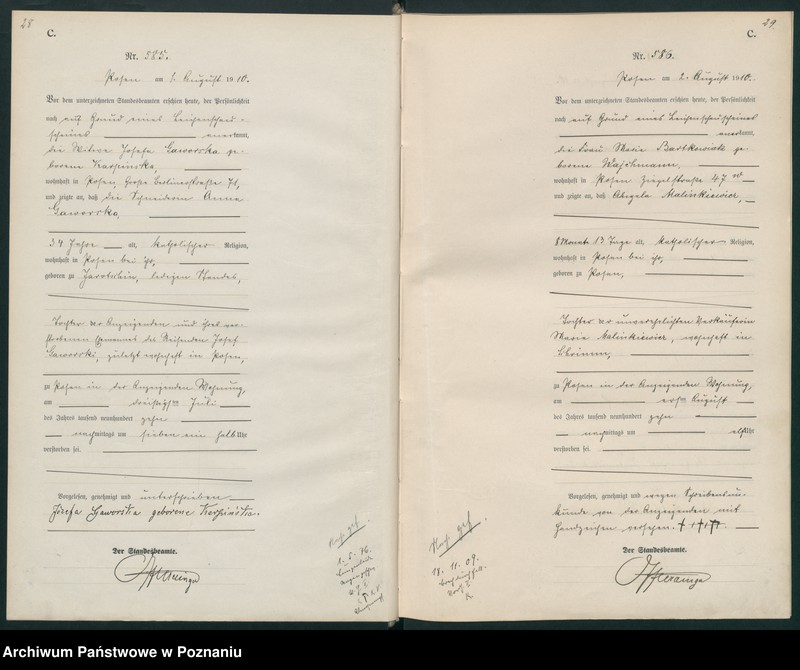 28
C.
Nr. 585.
Posen am 1. August 1910.
Vor dem unterzeichneten Standesbeamten erschien heute, der Persönlichkeit
nach auf Grund eines Leichenschau-
scheines anerkannt,
die Witwe Josefa Gaworska ge-
borene Karpinska,
wohnhaft in Posen, Große Berlinerstraße 71,
und zeigte an, daß die Schneiderin Anna
Gaworska,
34 Jahre alt, katholischer Religion,
wohnhaft in Posen bei ihr,
geboren zu Jarotschin, ledigen Standes,
Tochter der Anzeigenden und ihres ver-
storbenen Ehemannes des Reisenden Josef
Gaworski, zuletzt wohnhaft in Posen,
zu Posen in der Anzeigenden Wohnung,
am dreißigsten Juli
des Jahres tausend neunhundert zehn
nachmittags um sieben ein halb Uhr
verstorben sei.
Vorgelesen, genehmigt und unterschrieben
Józefa Gaworska geborene Karpińska.
Der Standesbeamte.
29
C.
Nr. 586.
Posen am 2. August 1910.
Vor dem unterzeichneten Standesbeamten erschien heute, der Persönlichkeit
nach auf Grund eines Leichenschauscheines
anerkannt,
die Frau Marie Bartkowiak ge-
borene
wohnhaft in Posen Ziegelstraße 47
und zeigte an, daß Malinkiewicz,
8 Monate 13 Tage alt, katholischer Religion,
wohnhaft in Posen bei ihr,
geboren zu Posen,
Tochter der unverehelichten Verkäuferin
Marie Malinkiewicz, wohnhaft in
zu Posen in der Anzeigenden Wohnung,
am ersten August
des Jahres tausend neunhundert zehn
nachmittags um elf Uhr
verstorben sei.
Vorgelesen, genehmigt und wegen Schreibensun-
kunde von der Anzeigenden mit
Handzeichen versehen. †††
Der Standesbeamte.
1. 5. 76.
18. 11. 09.
Archiwum Państwowe w Poznaniu